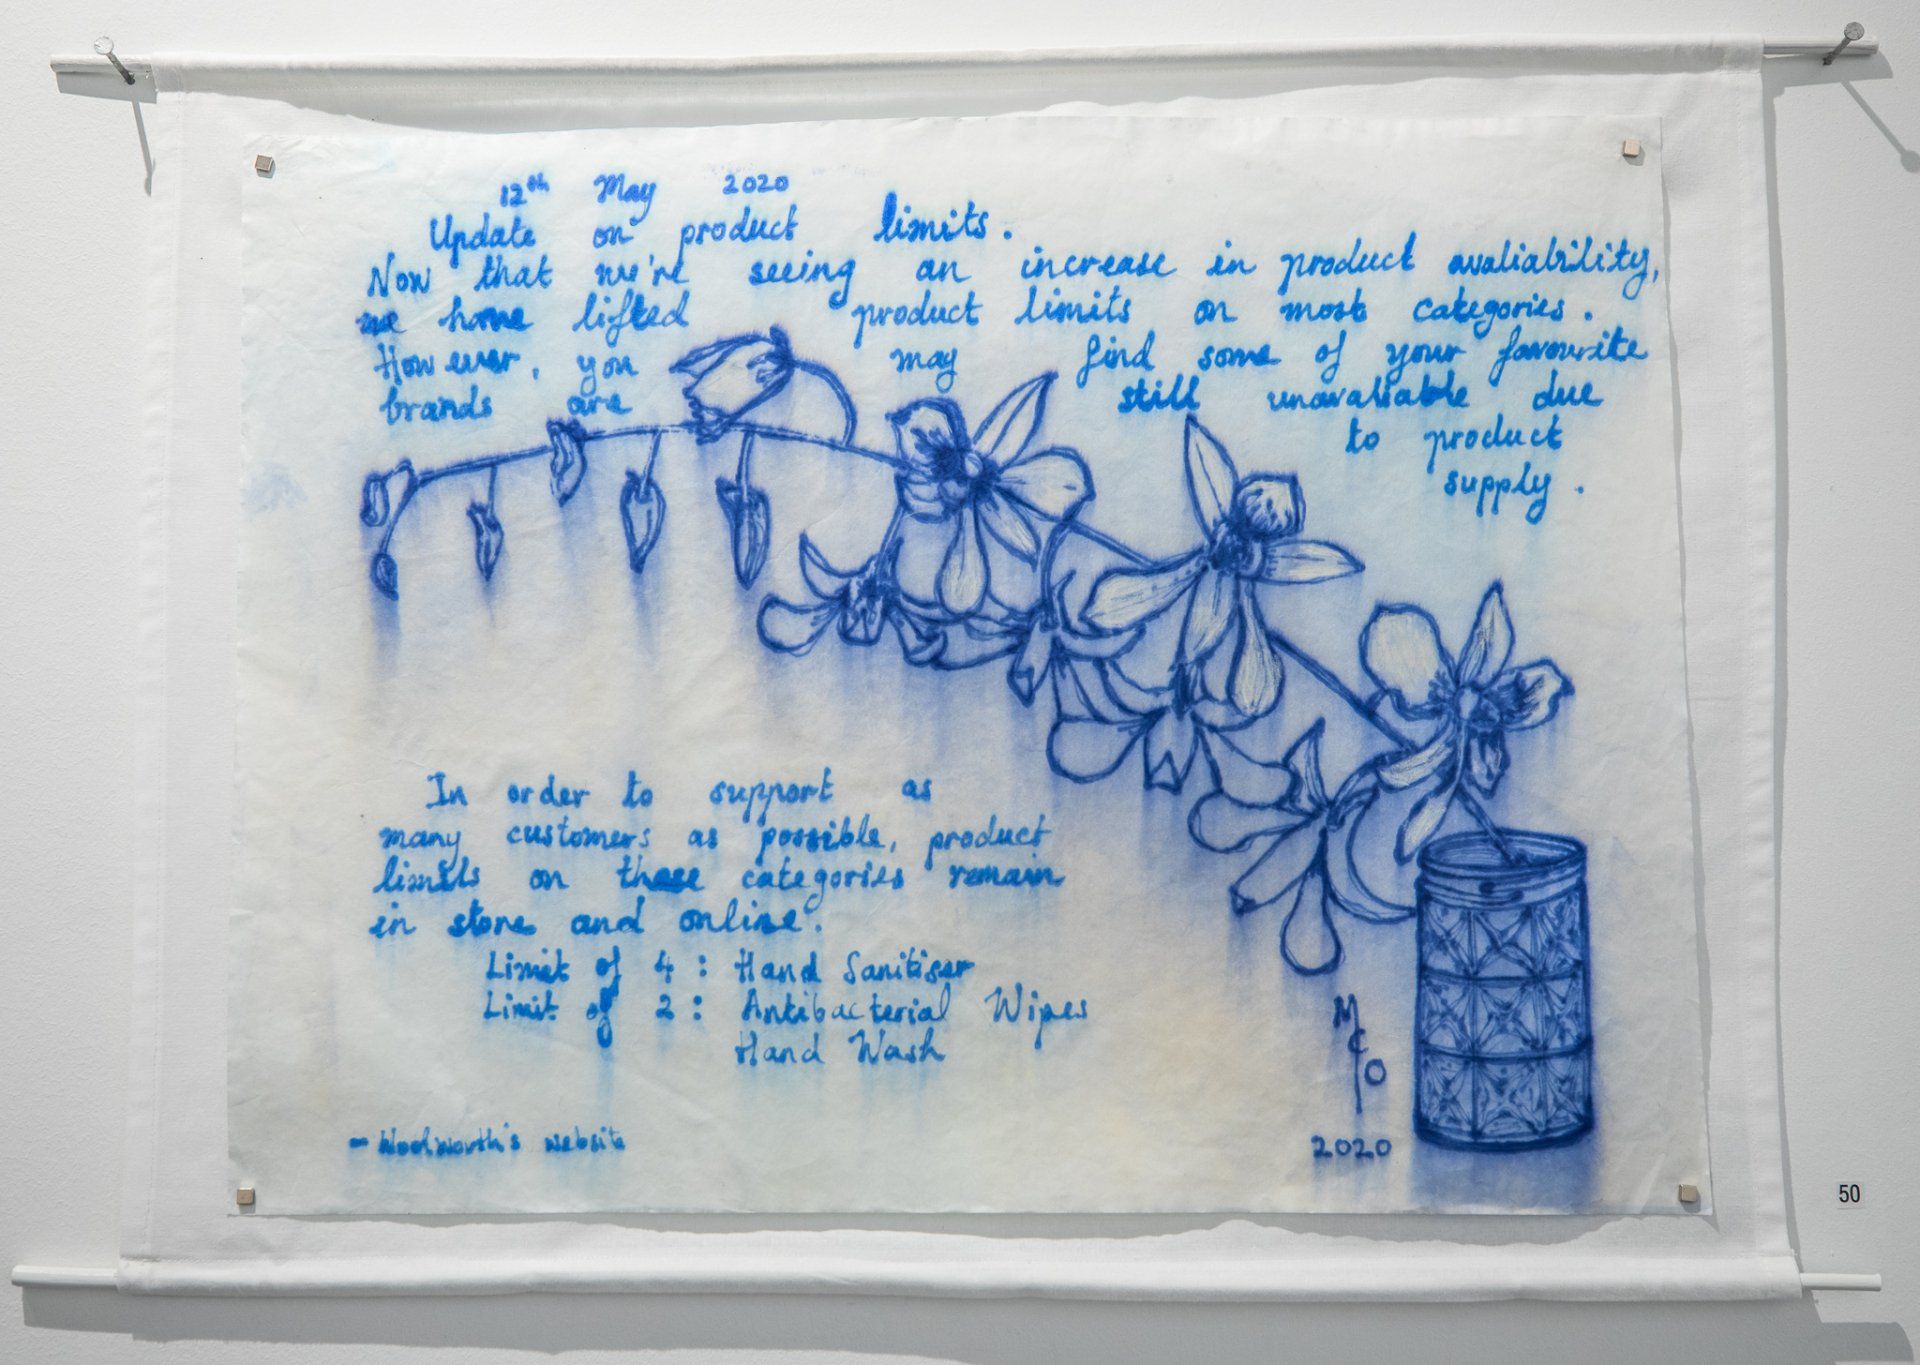 12th May 2020
Update on product limits.
Now that we're seeing an increase in product avaliability,
we have lifted product limits on most categories.
However, you may find some of your favourite
brands are still unavaliable due
to product
supply.
In order to support as
many customers as possible, product
limits on these categories remain
in store and online.
Limit of 4: Hand Sanitiser
Limit of 2: Antibacterial Wipes
Hand Wash
- Woolworth's website
McO
2020
50